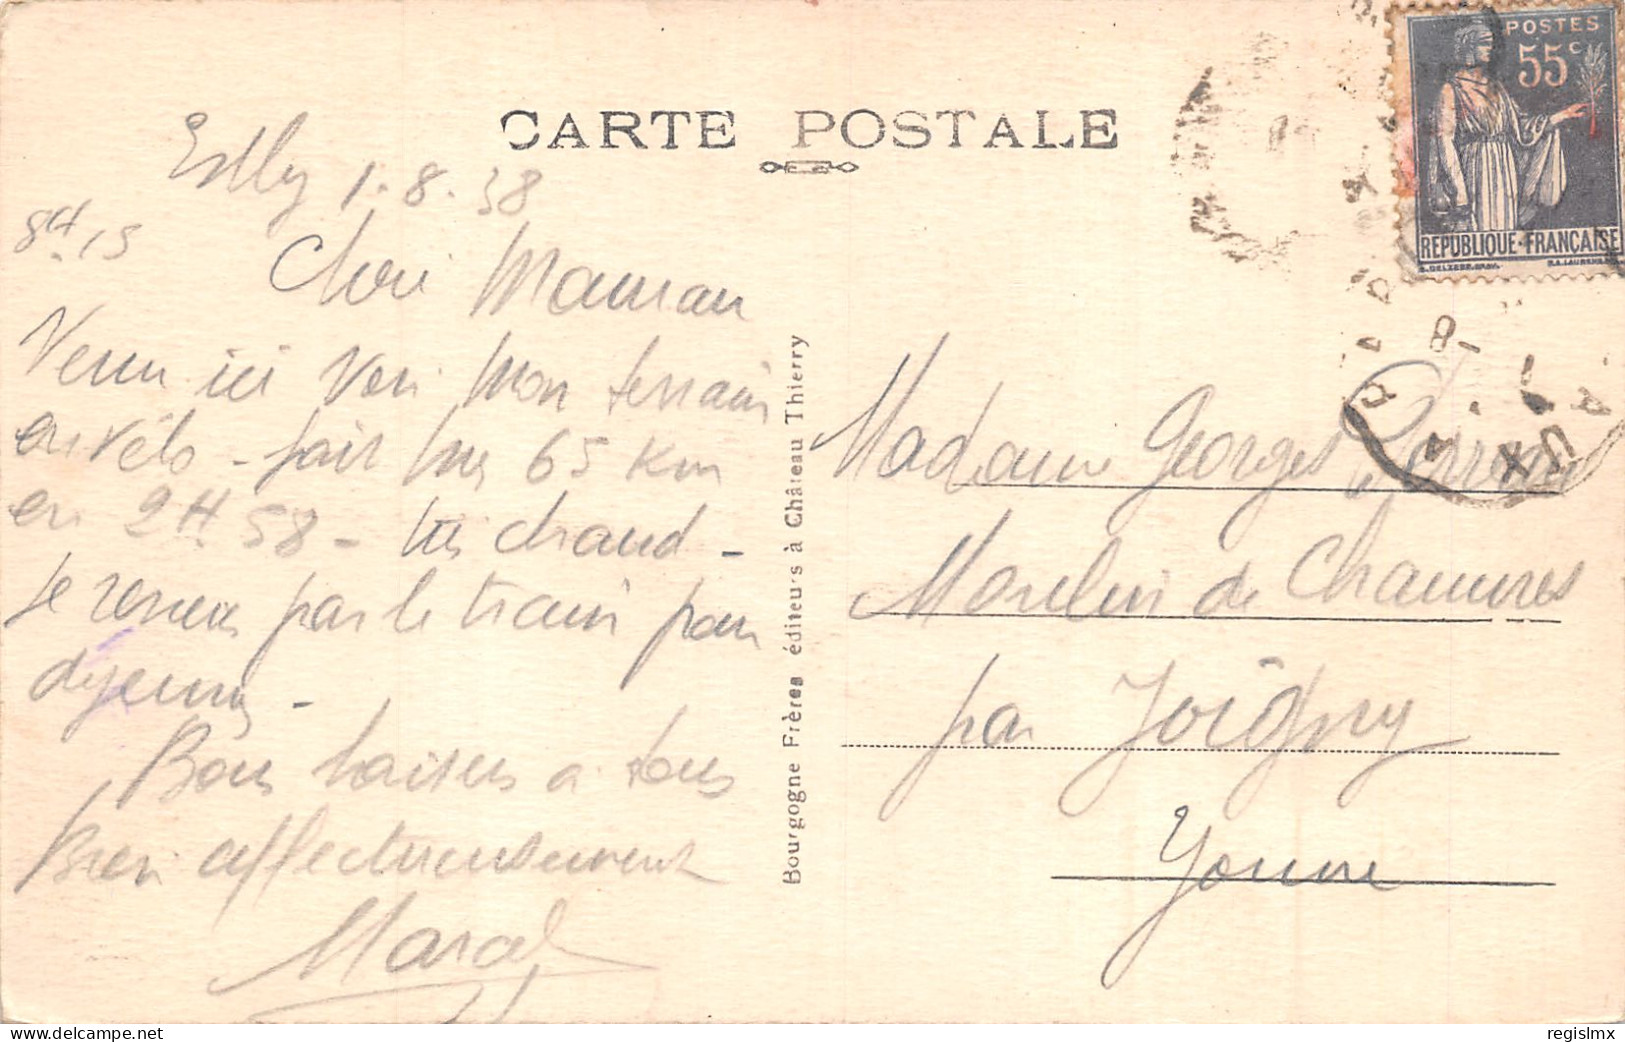 CARTE POSTALE
Eslly 1.8.38
8H.15
Chère Maman
Venu ici voir mon terrain
en vélo - fait les 65 Km
en 2H.58 - très chaud -
Je reviens par le train pour
déjeuner -
Bons baisers à tous
Bien affectueusement
Marcel
Bourgogne Frères éditeurs à Château Thierry
POSTES
55c
REPUBLIQUE·FRANCAISE
Madame Georges
Moulin de Chaumes
par Joigny
Yonne
regislmx